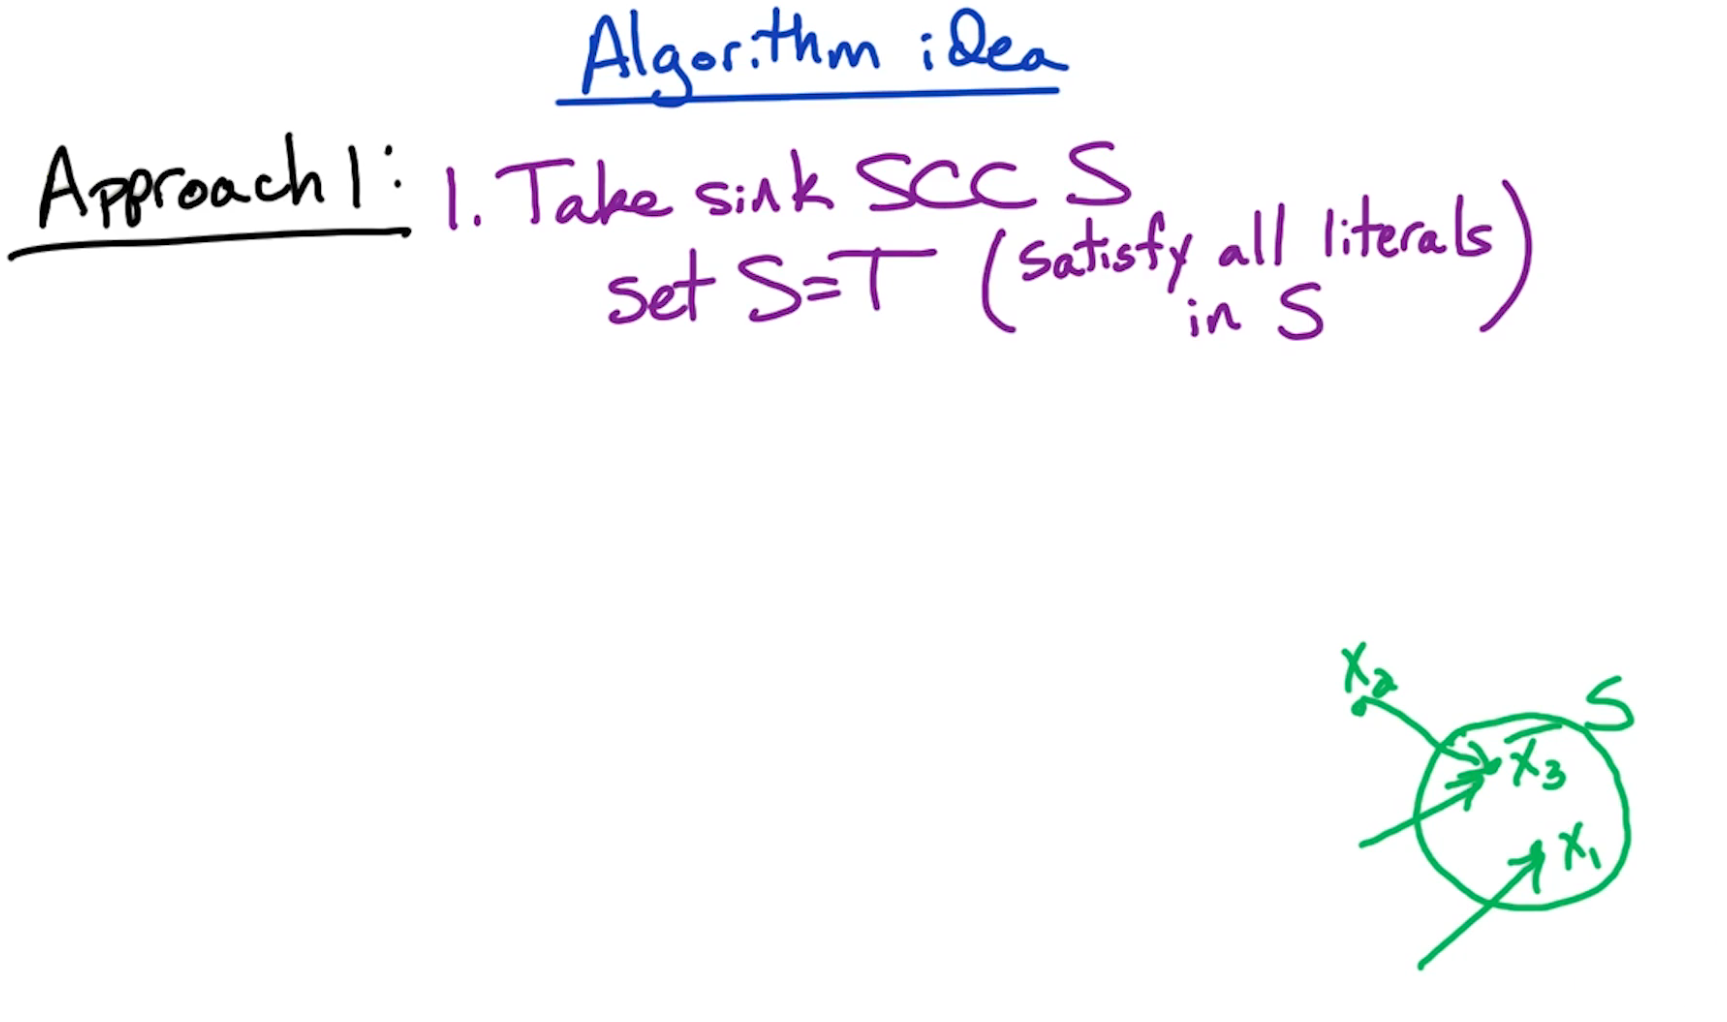 Algorithm idea
Approach 1: 1. Take sink SCC S
set S=T (satisfy all literals
in S)
X₂
S
X̅₃
X₁